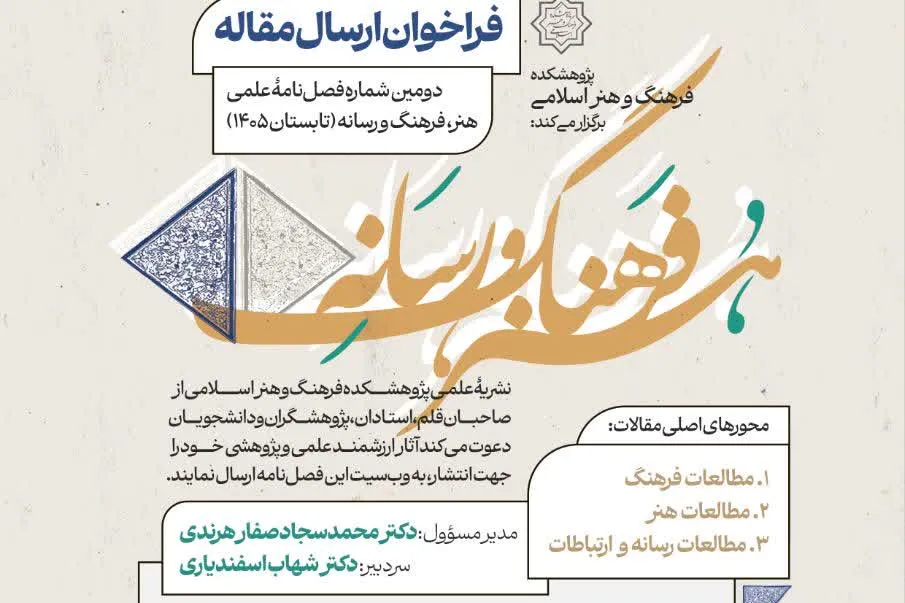 فراخوان ارسال مقاله
دومین شماره فصل‌نامهٔ علمی
هنر، فرهنگ و رسانه (تابستان ۱۴۰۵)
پژوهشکده
فرهنگ و هنر اسلامی
برگزار می‌کند:
هنر فرهنگ و رسانه
نشریهٔ علمی پژوهشکده فرهنگ و هنر اسلامی از
صاحبان قلم، استادان، پژوهشگران و دانشجویان
دعوت می‌کند آثار ارزشمند علمی و پژوهشی خود را
جهت انتشار، به وب‌سیت این فصل‌نامه ارسال نمایند.
محورهای اصلی مقالات:
۱. مطالعات فرهنگ
۲. مطالعات هنر
۳. مطالعات رسانه و ارتباطات
مدیر مسؤول: دکتر محمدسجاد صفار هرندی
سردبیر: دکتر شهاب اسفندیاری